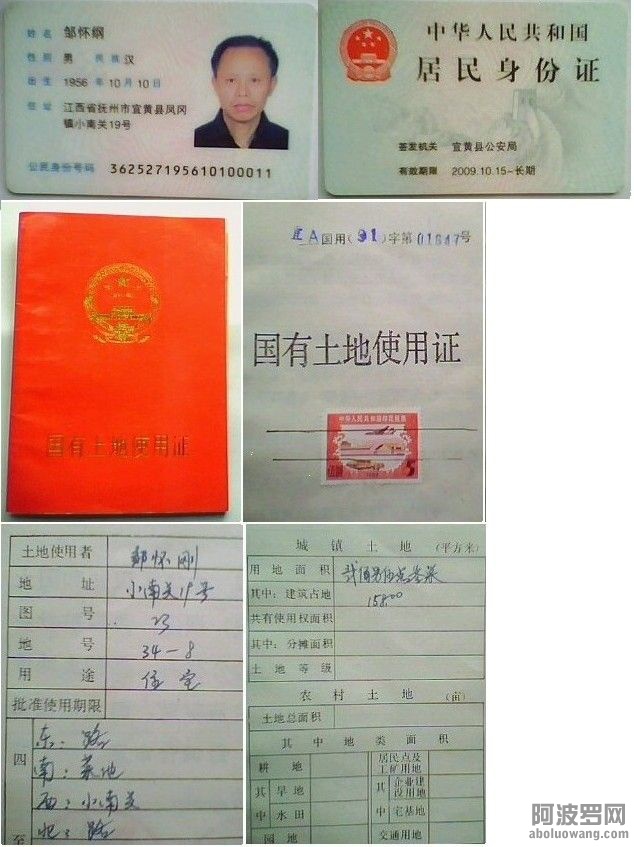 姓名 邹怀纲
性别 男 民族 汉
出生 1956年10月10日
住址 江西省抚州市宜黄县凤冈
镇小南关19号
公民身份号码 362527195610100011
中华人民共和国
居民身份证
签发机关 宜黄县公安局
有效期限 2009.10.15-长期
国有土地使用证
A国用(91)字第01647号
国有土地使用证
中华人民共和国印花税票
伍圆 5
土地使用者 邹怀刚
地址 小南关19号
图号 23
地号 34-8
用途 住宅
批准使用期限
四至
东：路
南：菜地
西：小南关
北：路
城镇土地 (平方米)
用地面积
其中：建筑占地 158.00
共有使用权面积
其中：分摊面积
土地等级
农村土地 (亩)
土地总面积
其中地类面积
耕地 居民点及工矿用地
其旱地 其企业建设用地
中水田 中宅基地
园地 交通用地
阿波罗网
aboluowang.com